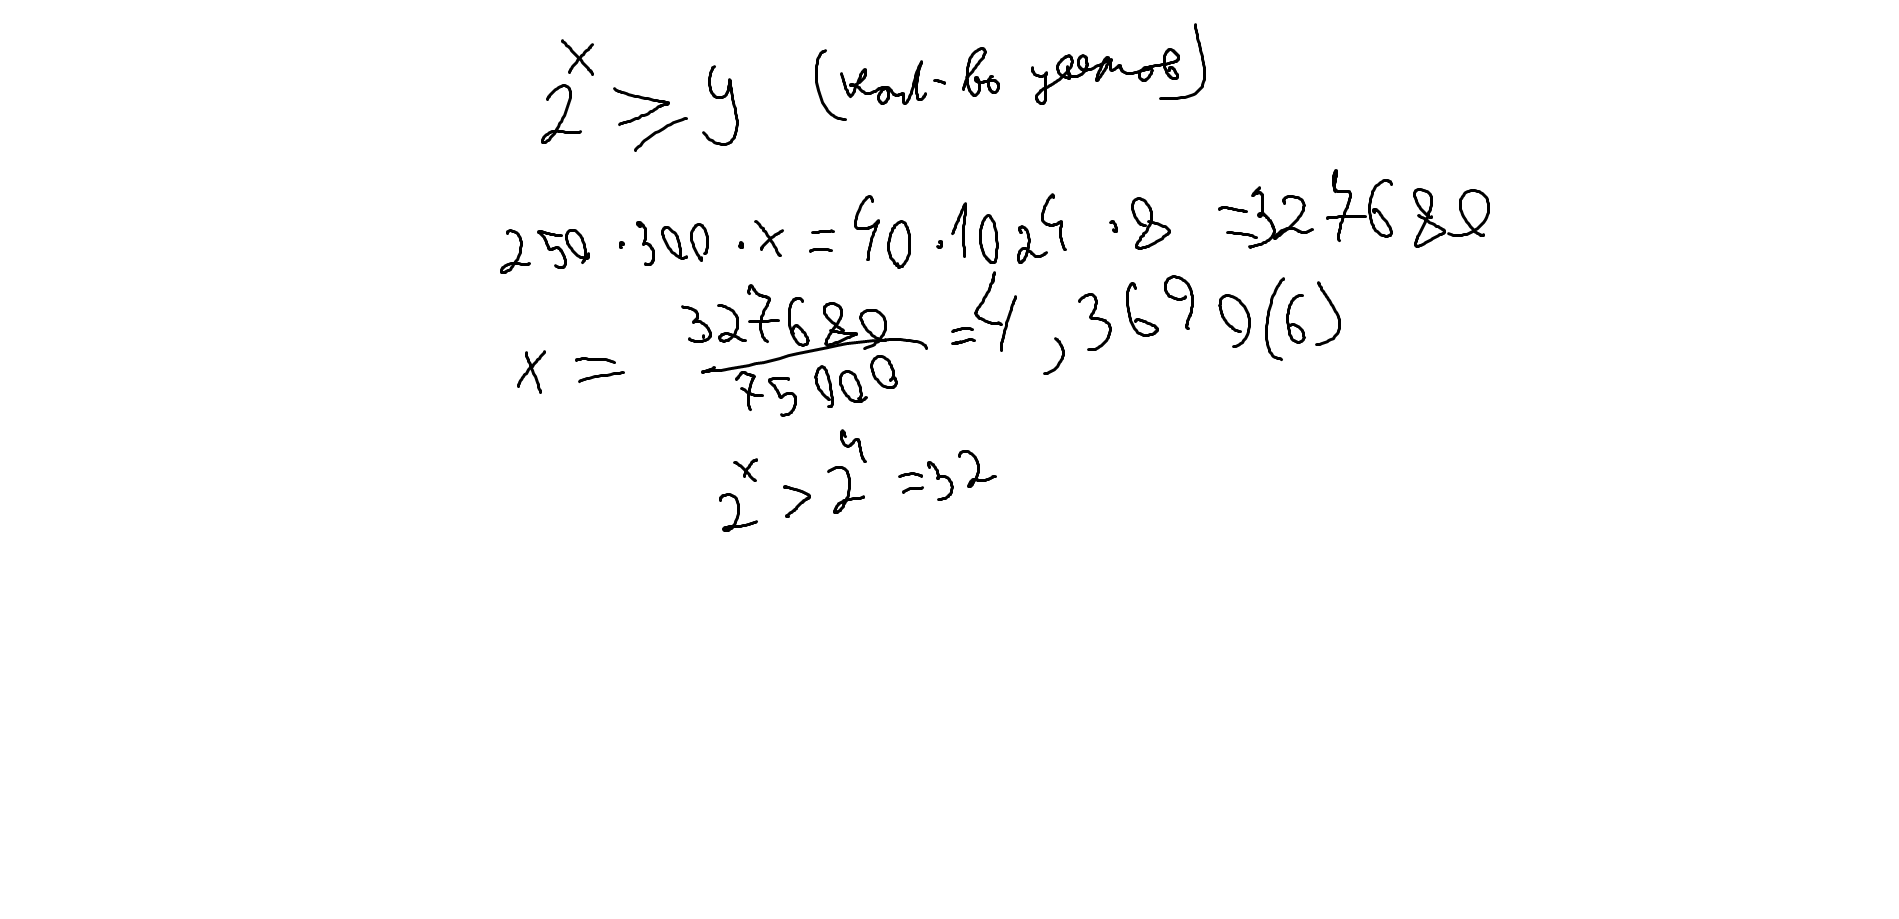 2^x ≥ y (кол-во цветов)
250 · 300 · x = 40 · 1024 · 8 = 327680
x = 327680/75000 = 4,3690(6)
2^x > 2^4 = 32